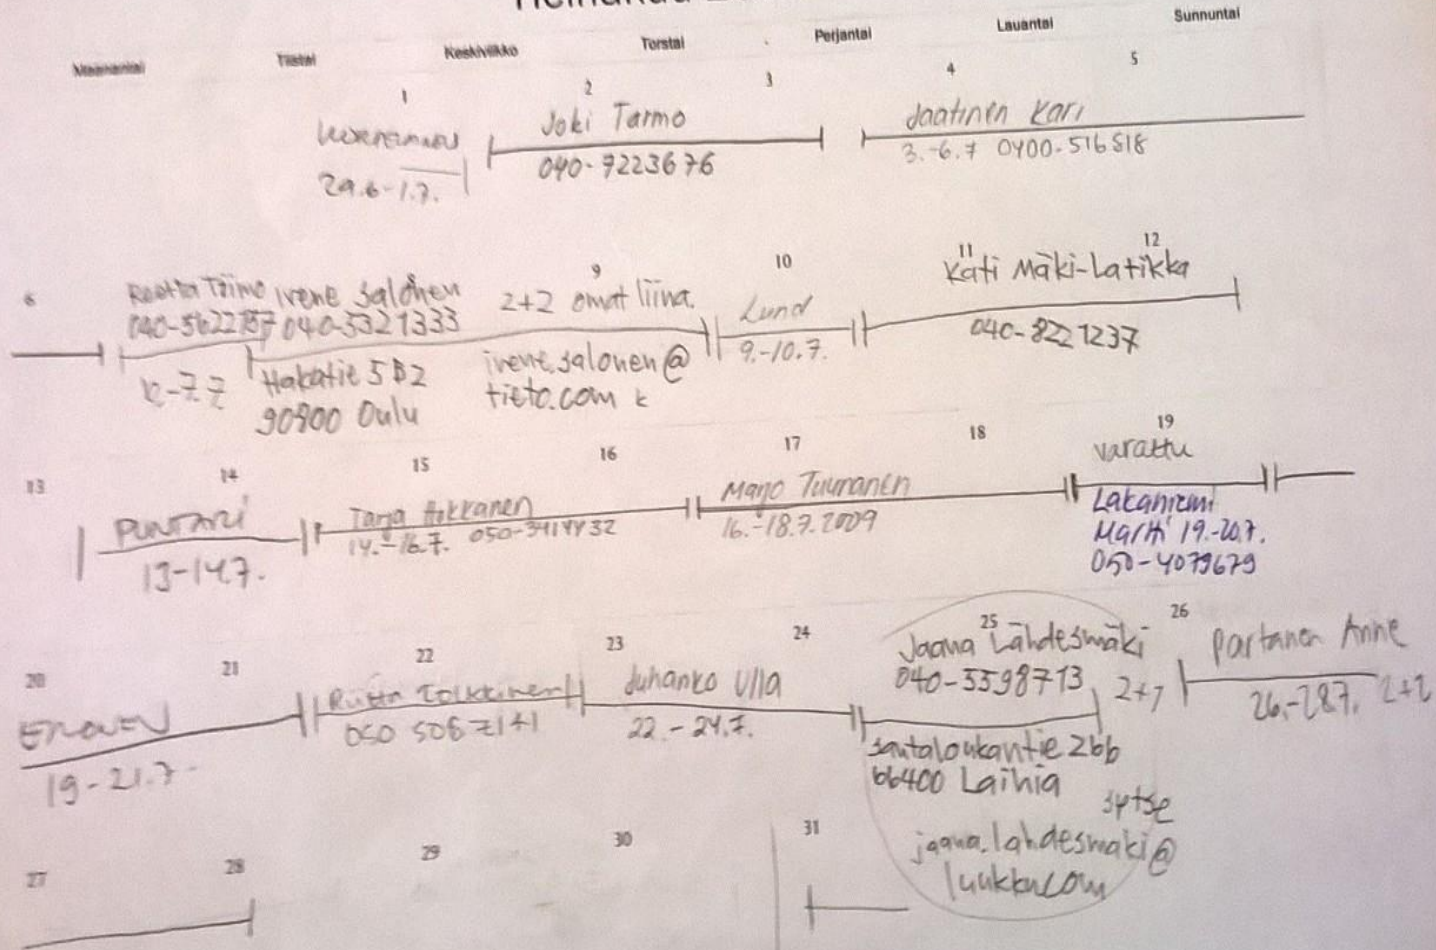 Maanantai Tiistai Keskiviikko Torstai Perjantai Lauantai Sunnuntai
1 2 3 4 5
29.6-1.7.
Joki Tarmo
040-9223676
Jaatinen Kari
3.-6.7 0400-516818
6 9 10 11 12
Reetta Tiimo
040-5622157
-7.7
Irene Salonen
040-5321333
2+2 omat liina.
Hakatie 5B2
90900 Oulu
irene.salonen@
tieto.com
Lund
9.-10.7.
Kati Mäki-Latikka
040-8221237
13 14 15 16 17 18 19
13-14.7.
Tarja
14.-16.7. 050-3414432
Marjo Tuuranen
16.-18.7.2009
varattu
Lakaniemi
Martti 19.-20.7.
050-4079679
20 21 22 23 24 25 26
19-21.7.
Riitta Tolkkinen
050 506 7141
Juhanko Ulla
22.-24.7.
Jaana Lähdesmäki
040-5598713
Santaloukantie 266
66400 Laihia
jaana.lahdesmaki@
luukku.com
Partanen Anne
26.-28.7. 2+2
27 28 29 30 31